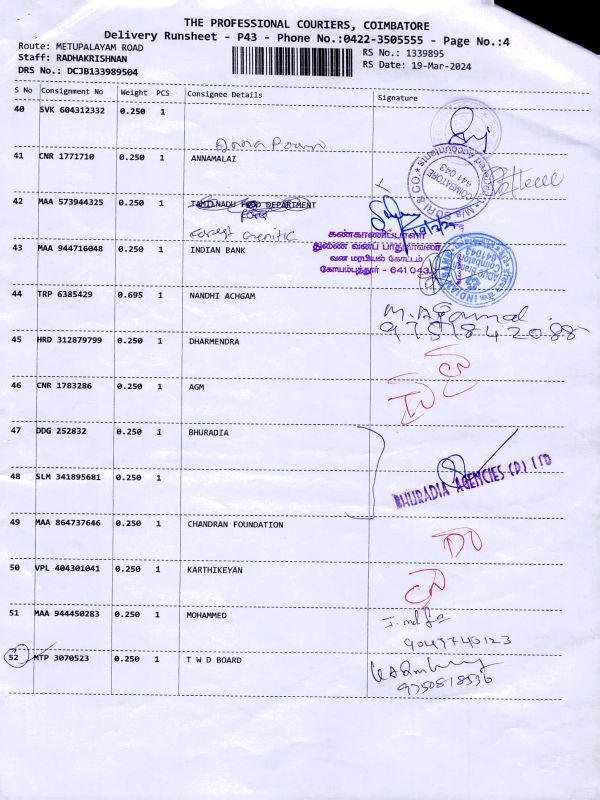 THE PROFESSIONAL COURIERS, COIMBATORE
Delivery Runsheet - P43 - Phone No.:0422-3505555 - Page No.:4
Route: METUPALAYAM ROAD
Staff: RADHAKRISHNAN
DRS No.: DCJB133989504
RS No.: 1339895
RS Date: 19-Mar-2024
S No Consignment No Weight PCS Consignee Details Signature
40 SVK 604312332 0.250 1
41 CNR 1771710 0.250 1 ANNAMALAI
COIMBATORE
641 043
42 MAA 573944325 0.250 1 TAMILNADU FOOD DEPARTMENT
19/3/24
கண்காணிப்பாளர்
துணை வனப் பாதுகாவலர்
வன மரபியல் கோட்டம்
கோயம்புத்தூர் - 641 043
43 MAA 944716048 0.250 1 INDIAN BANK
44 TRP 6385429 0.695 1 NANDHI ACHGAM
9751842088
45 HRD 312879799 0.250 1 DHARMENDRA
46 CNR 1783286 0.250 1 AGM
47 DDG 252832 0.250 1 BHURADIA
BHURADIA AGENCIES (P) LTD
48 SLM 341895681 0.250 1
49 MAA 864737646 0.250 1 CHANDRAN FOUNDATION
50 VPL 404301041 0.250 1 KARTHIKEYAN
51 MAA 944450283 0.250 1 MOHAMMED
9047740123
52 MTP 3070523 0.250 1 T W D BOARD
9750818536